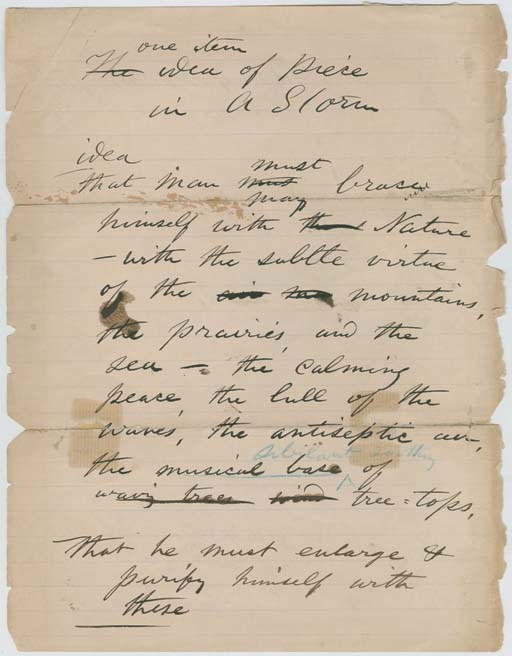 one item
The idea of piece
in A Storm
idea
must
that man must brace
may
himself with the & Nature
– with the subtle virtue
of the air mountains,
the prairies, and the
sea – the calming
peace the lull of the
waves, the antiseptic air,
sibilant soothing
the musical base of
wavy trees wind tree=tops,
That he must enlarge &
purify himself with
these